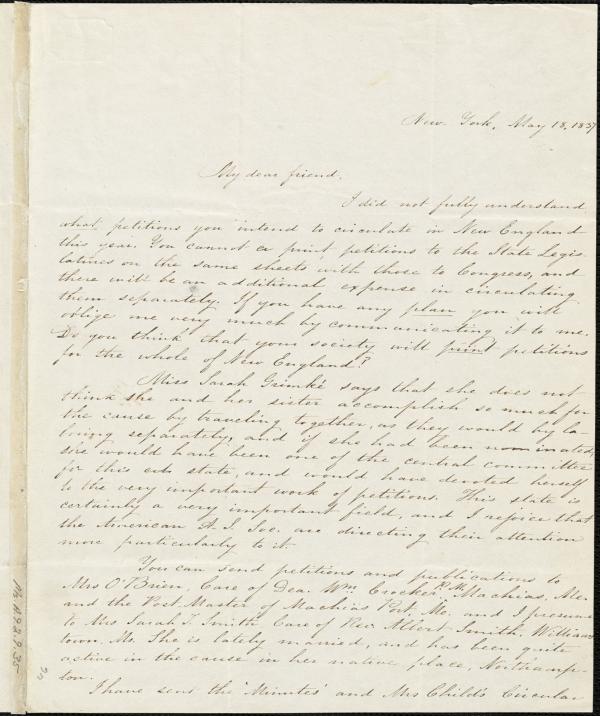 New York, May 18, 1837
My dear friend,
I did not fully understand
what petitions you intend to circulate in New England
this year. You cannot print petitions to the State Legis-
latures on the same sheets with those to Congress, and
there will be an additional expense in circulating
them separately. If you have any plan you will
oblige me very much by communicating it to me.
Do you think that your society will print petitions
for the whole of New England?
Miss Sarah Grimké says that she does not
think she and her sister accomplish so much for
the cause by traveling together, as they would by la-
boring separately, and if she had been nominated,
she would have been one of the central committee
for this state, and would have devoted herself
to the very important work of petitions. This state is
certainly a very important field, and I rejoice that
the American A. S. Soc. are directing their attention
more particularly to it.
You can send petitions and publications to
Mrs O'Brien, Care of Dea. Wm. Crocker, P.M. Machias, Me.
and the Post Master of Machias Port, Me. and I presume
to Mrs Sarah T. Smith, Care of Rev. Albert Smith, Williams
town, Ms. She is lately married, and has been quite
active in the cause in her native place, Northamp-
ton.
I have sent the 'Minutes' and Mrs Child's Circular
Ms.A.9.2.9.35